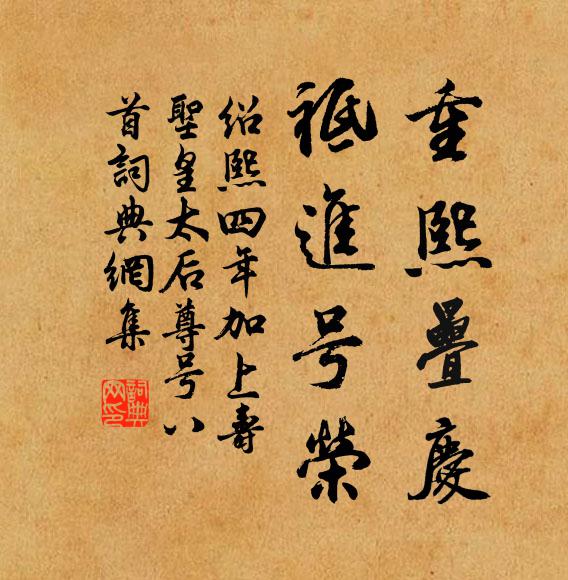 重熙疊慶
祗進号榮
绍熙四年加上壽
聖皇太后尊号八
首詞典網集
詞典网印